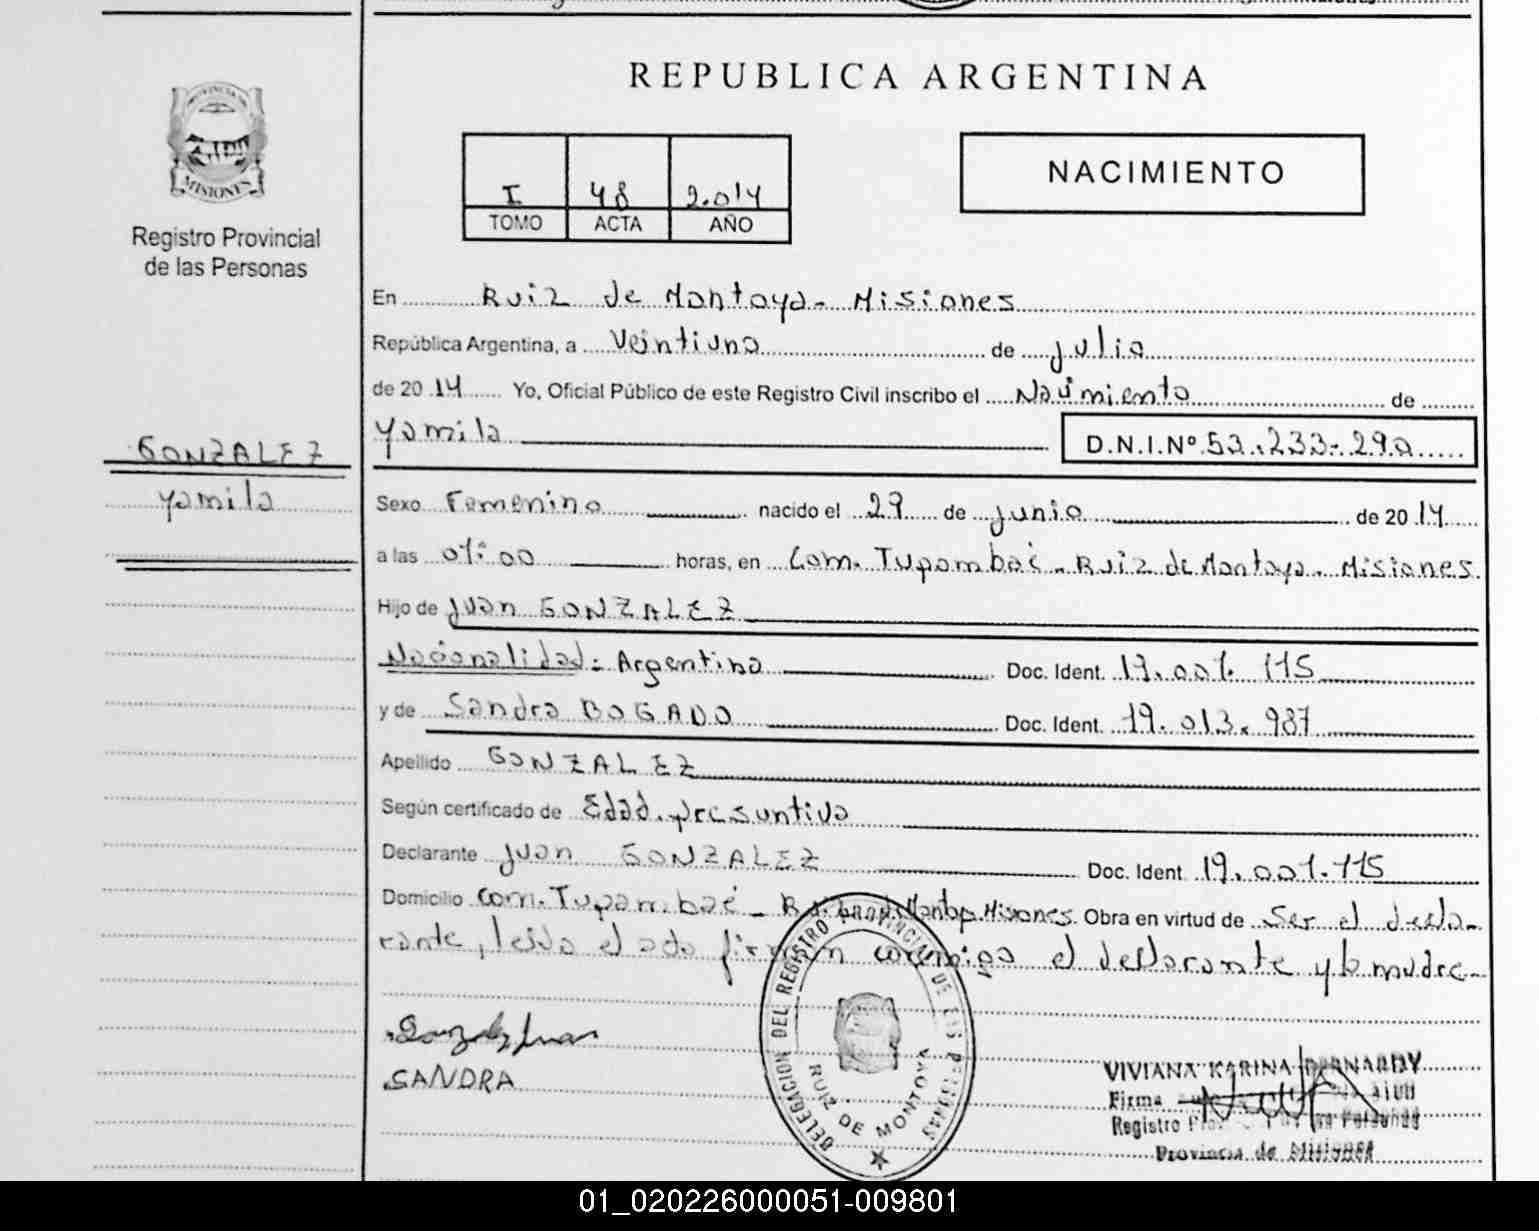 REPUBLICA ARGENTINA
PROVINCIA DE
MISIONES
Registro Provincial
de las Personas
I 48 2.014
TOMO ACTA AÑO
NACIMIENTO
En Ruiz de Montoya - Misiones
República Argentina, a Veintiuno de julio
de 20 14 Yo, Oficial Público de este Registro Civil inscribo el Nacimiento de
Yamila D.N.I.Nº 53.233.290
GONZALEZ
Yamila
Sexo Femenino nacido el 29 de junio de 20 14
a las 01:00 horas, en Com. Tupambaé - Ruiz de Montoya - Misiones
Hijo de Juan GONZALEZ
Nacionalidad: Argentina Doc. Ident. 19.001.115
y de Sandra BOGADO Doc. Ident. 19.013.987
Apellido GONZALEZ
Según certificado de Edad presuntiva
Declarante Juan GONZALEZ Doc. Ident. 19.001.115
Domicilio Com. Tupambaé - Misiones Obra en virtud de Ser el decla-
rante, leida el acta firman conmigo el declarante y la madre-
Gonzalez Juan
SANDRA
DELEGACION DEL REGISTRO PROVINCIAL DE LAS PERSONAS
RUIZ DE MONTOYA
VIVIANA KARINA BERNARDY
Firma
Registro Personas
Provincia de Misiones
01_020226000051-009801